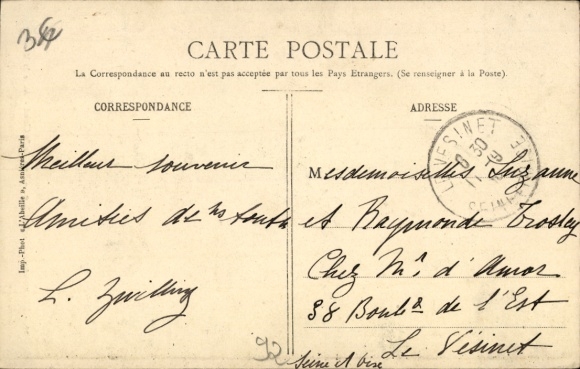 384
CARTE POSTALE
La Correspondance au recto n'est pas acceptée par tous les Pays Etrangers. (Se renseigner à la Poste).
CORRESPONDANCE
Meilleur souvenir
Amitiés de ns toutes
L. Zwilling
Imp.-Phot « l'Abeille », Asnières-Paris
ADRESSE
LE VESINET
SEINE
Mesdemoiselles Suzanne
et Raymonde Trosley
Chez Mr. d'Amor
38 Boulд de l'Est
Le Vésinet
Seine et Oise
92